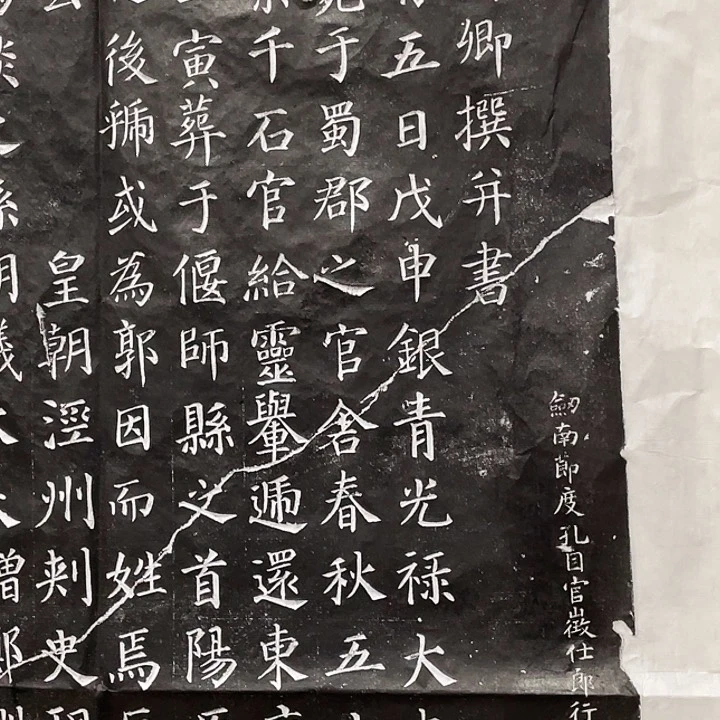 劒南節度孔目官徵仕郎行
卿撰并書
五日戊申銀青光禄大
于蜀郡之官舍春秋五
千石官給靈轝遞還東
寅葬于偃師縣之首陽
後虢或為郭因而姓焉
皇朝涇州刾史